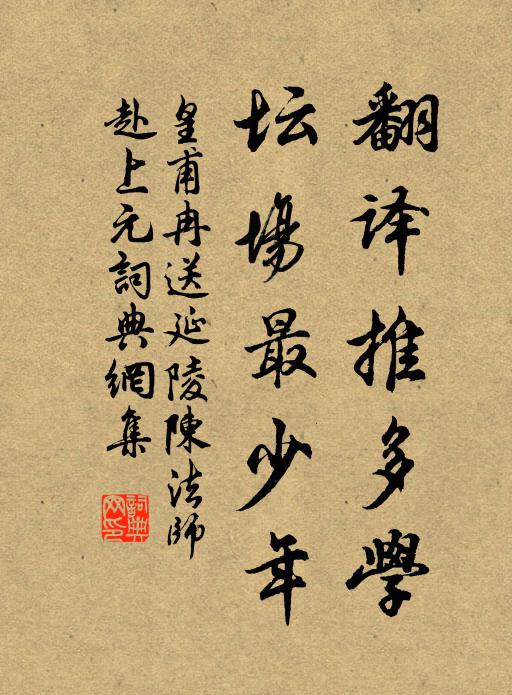 翻译推多學
坛場最少年
皇甫冉送延陵陳法師
赴上元詞典網集
詞典網印